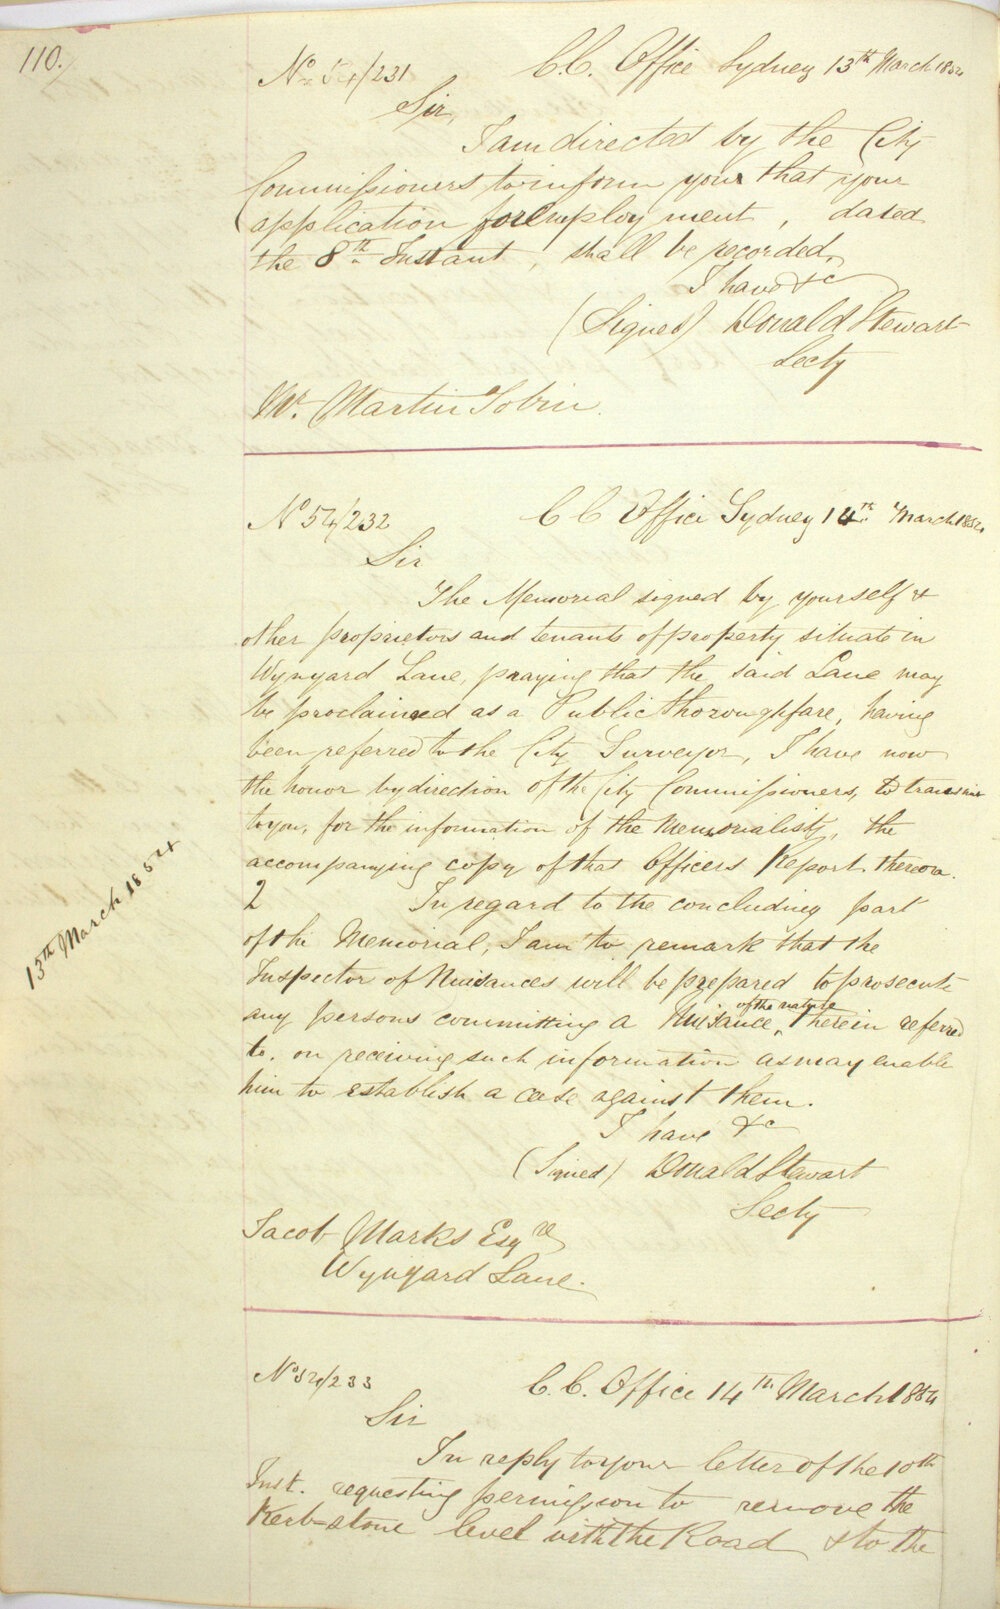 110.
No 54/231 C.C. Office Sydney 13th March 1854
Sir,
I am directed by the City
Commissioners to inform your that your
application for Employment, dated
the 8th Instant, shall be recorded,
I have &c
(Signed) Donald Stewart
Secty
Mr. Martin Tobin.
No 54/232 C C Office Sydney 14th March 1854
Sir
The Memorial signed by yourself &
other proprietors and tenants of property situate in
Wynyard Lane, praying that the said Lane may
be proclaimed as a Public thoroughfare, having
been referred to the City Surveyor, I have now
the honor by direction of the City Commissioners, to transmit
to you, for the information of the Memorialists, the
accompanying copy of that Officers Report thereon.
2 In regard to the concluding part
of the Memorial, I am to remark that the
Inspector of Nuisances will be prepared to prosecute
any persons committing a Nuisance of the nature therein referred
to, on receiving such information as may enable
him to establish a case against them.
I have &c
(Signed) Donald Stewart
Secty
Jacob Marks Esqre
Wynyard Lane.
13th March 1854
No 54/233 C.C. Office 14th March 1854
Sir
In reply to your letter of the 10th
Inst. requesting permission to remove the
Kerb-stone level with the Road & to the